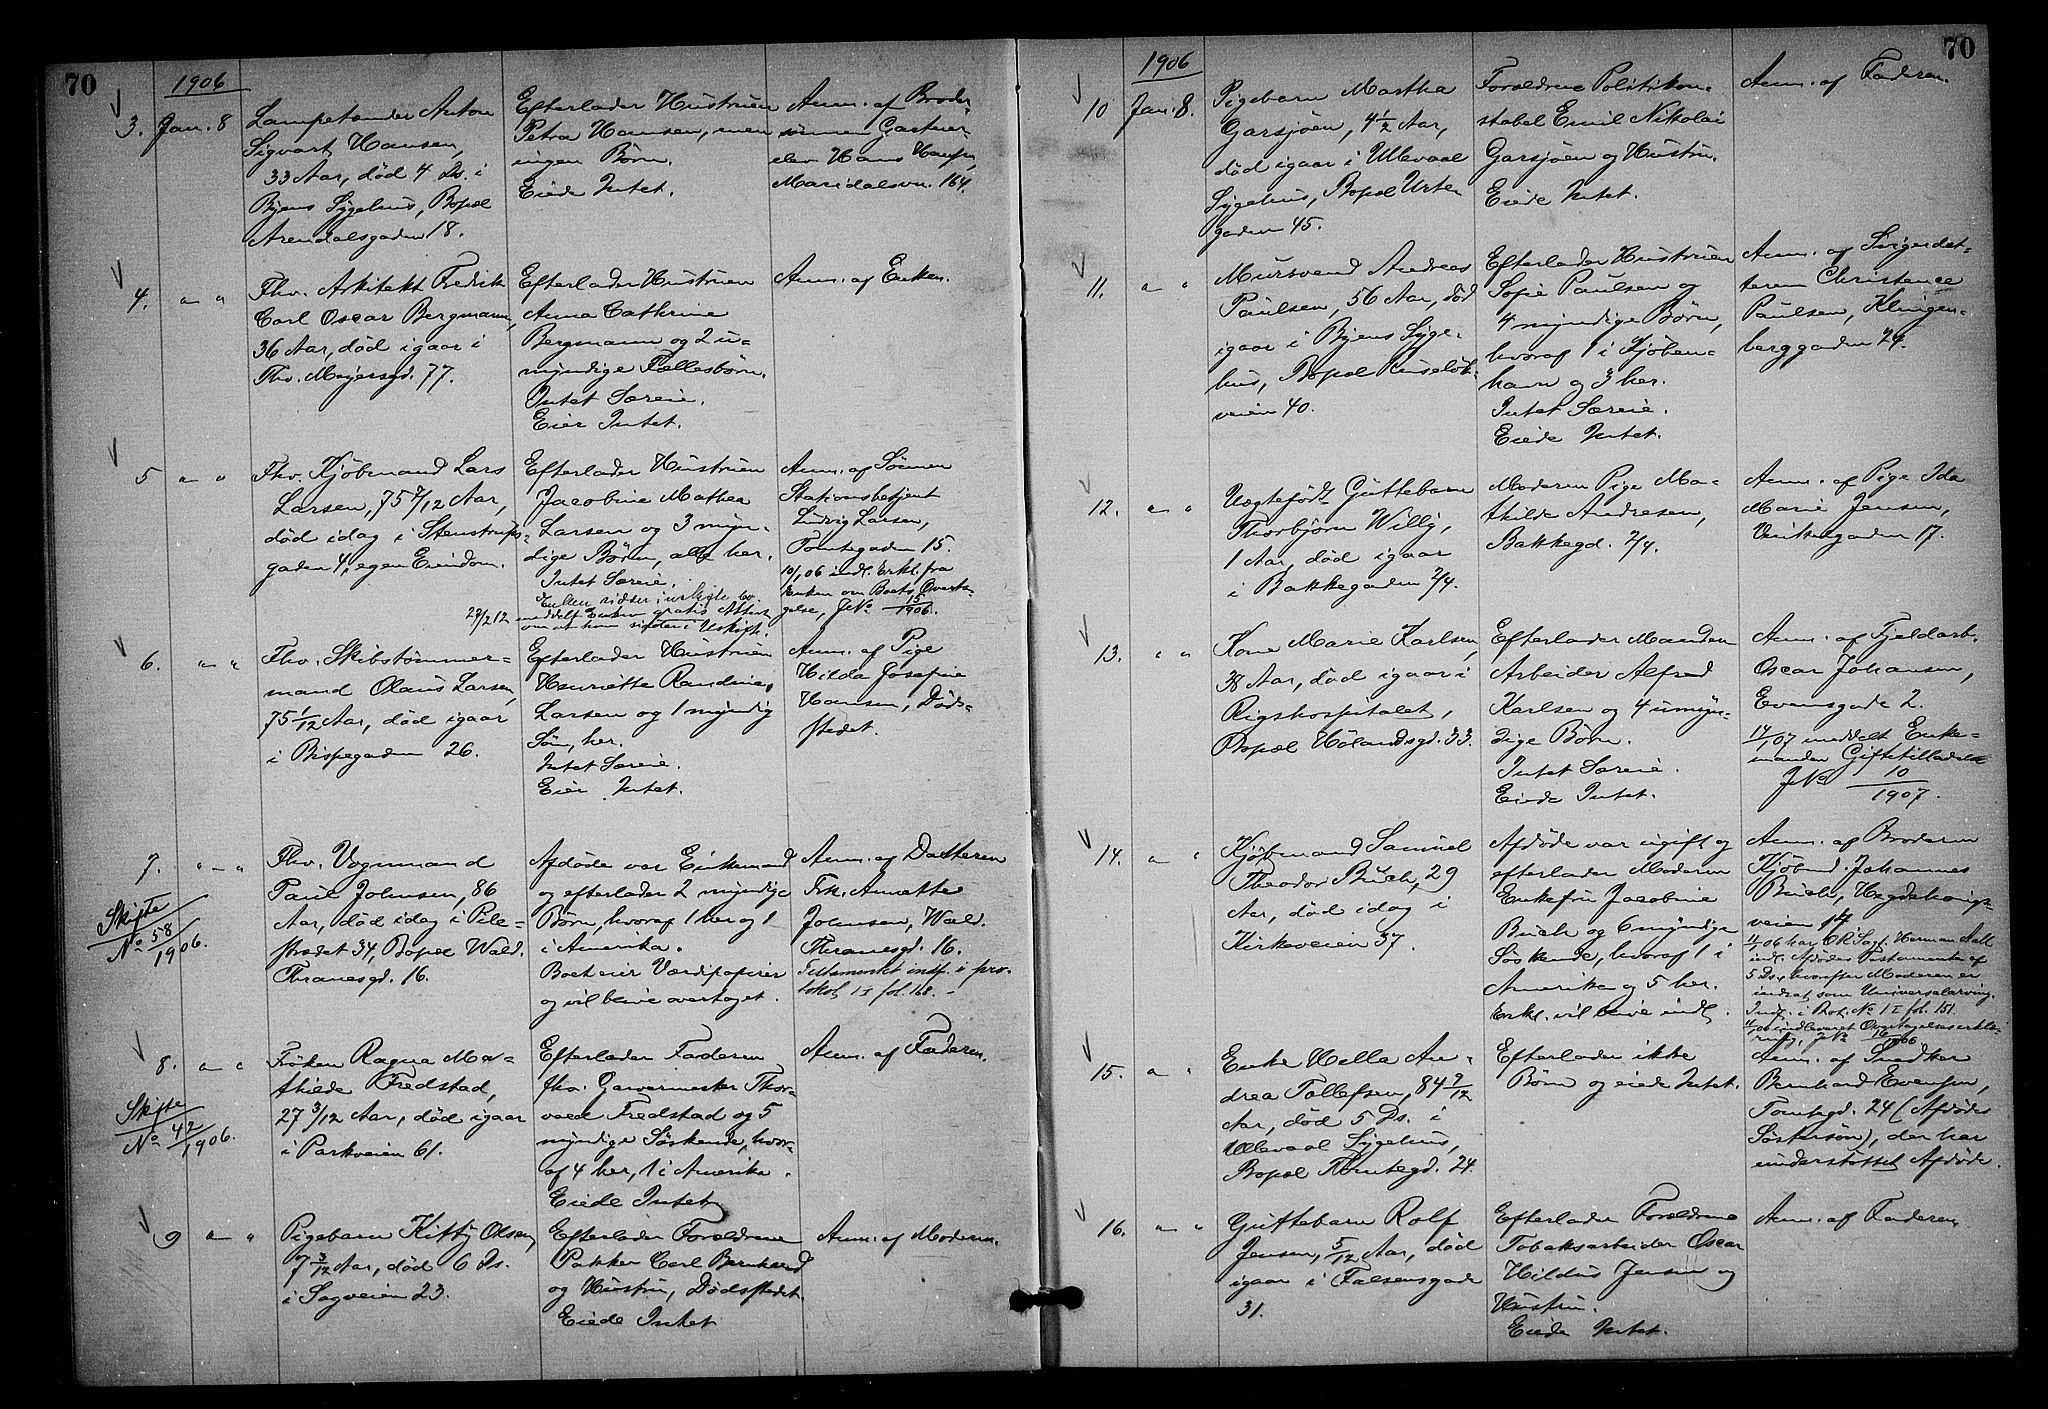 70
1906
3. Jan. 8
Lampetænder Anton
Sigvart Hansen,
33 Aar, død 4 Ds. i
Byens Sygehus, Bopæl
Arendalsgaden 18.
Efterlader Hustruen
Petra Hansen, men
ingen Børn.
Eiede Intet.
Anm. af Broder
sønnen Gartner-
elev Hans Hansen,
Maridalsvn. 164.
4. " "
Fhv. Arkitekt Fredrik
Carl Oscar Bergmann,
36 Aar, død igaar i
Thv. Meyersgd. 77.
Efterlader Hustruen
Anna Cathrine
Bergmann og 2 u-
myndige Fællesbørn.
Intet Særeie.
Eier Intet.
Anm. af Enken.
5 " "
Fhv. Kjøbmand Lars
Larsen, 75 7/12 Aar,
død idag i Stenstrups-
gaden 4, egen Eiendom.
Efterlader Hustruen
Jacobine Mathea
Larsen og 3 myn-
dige Børn, alle her.
Intet Særeie.
Enken sidder i uskiftet bo.
22/2 12 meddelt Enken gratis Attest
om at hun sidder i Uskift.
Anm. af Sønnen
Stationsbetjent
Ludvig Larsen,
Tomtegaden 15.
10/1 06 indl. Erkl. fra
Enken om Boets Overta-
gelse, J No 15/1906.
6. " "
Fhv. Skibstømmer-
mand Olaus Larsen,
75 1/12 Aar, død igaar
i Bispegaden 26.
Efterlader Hustruen
Henriette Randine
Larsen og 1 myndig
Søn, her.
Intet Særeie.
Eier Intet.
Anm. af Pige
Hilda Josefine
Hansen, Døds-
stedet.
7. " "
Skifte
No 58/1906.
Fhv. Vognmand
Paul Johnsen, 86
Aar, død idag i Pile-
strædet 34, Bopæl Wald.
Thranesgd. 16.
Afdøde var Enkemand
og efterlader 2 myndige
Børn, hvoraf 1 her og 1
i Amerika.
Boet eier Værdipapirer
og vil blive overtaget.
Anm. af Datteren
Frk. Annette
Johnsen, Wald.
Thranesgd. 16.
Testamentet indf. i pro-
tokol 1 I fol. 168.
8. " "
Skifte
No 42/1906.
Frøken Ragna Ma-
thilde Fredstad,
27 3/12 Aar, død igaar
i Parkveien 61.
Efterlader Faderen
fhv. Garvermester Thor-
vald Fredstad og 5
myndige Søskende, hvor-
af 4 her, 1 i Amerika.
Eiede Intet
Anm. af Faderen.
9 " "
Pigebarn Kitty Olsen,
7 3/12 Aar, død 6 Ds.
i Sagveien 23.
Efterlader Forældrene
Pakker Carl Bernhard
og Hustru, Dødsstedet.
Eiede Intet
Anm. af Moderen.
70
1906
10 Jan. 8.
Pigebarn Martha
Garsjøen, 4 1/2 Aar,
død igaar i Ullevaal
Sygehus, Bopæl Urte-
gaden 45.
Forældrene Politikon-
stabel Emil Nikolai
Garsjøen og Hustru.
Eiede Intet.
Anm. af Faderen.
11. " "
Mursvend Andreas
Paulsen, 56 Aar, død
igaar i Byens Syge-
hus, Bopæl Ruseløk-
veien 40.
Efterlader Hustruen
Sofie Paulsen og
4 myndige Børn,
hvoraf 1 i Kjøben-
havn og 3 her.
Intet Særeie.
Eiede Intet.
Anm. af Svigerdat-
teren Christence
Paulsen, Klingen-
berggaden 24.
12. " "
Uægtefødt Guttebarn
Thorbjørn Willy,
1 Aar, død igaar
i Bakkegaden 2/4.
Moderen Pige Ma-
thilde Andresen,
Bakkegd. 2/4.
Anm. af Pige Ida
Marie Jensen,
17.
13. " "
Kone Marie Karlsen,
38 Aar, død igaar i
Rigshospitalet,
Bopæl Hølandsgd. 33.
Efterlader Manden
Arbeider Alfred
Karlsen og 4 umyn-
dige Børn.
Intet Særeie.
Eiede Intet.
Anm. af Fjeldarb.
Oscar Johansen,
Evensgade 2.
17/1 07 meddelt Enke-
manden Giftetilladelse
J No 10/1907.
14. " "
Kjøbmand Samuel
Theodor Buch, 29
Aar, død idag i
Kirkeveien 37.
Afdøde var ugift og
efterlader Moderen
Enkefru Jacobine
Buch og 6 myndige
Søskende, hvoraf 1 i
Amerika og 5 her.
Erkl. vil blive indl.
Anm. af Broderen
Kjøbmd. Johannes
Buch, Hegdehaugs-
veien 17
11/1 06 har OR Sagf. Herman
indl. Afdødes Testamente af
5 Ds., hvorefter Moderen er
indsat som Universalarving.
Indf. i Prot. No 1 I fol. 151.
11/1 06 indleveret Overtagelseserklæ-
ring, J No 16/1906
15. " "
Enke Helle An-
drea Tollefsen, 84 9/12
Aar, død 5 Ds. i
Ullevaal Sygehus,
Bopæl Tomtegd. 24.
Efterlader ikke
Børn og eiede Intet.
Anm. af Snedker
Bernhard Evensen,
Tomtegd. 24 (Afdødes
Søstersøn), der har
understøttet Afdøde.
16. " "
Guttebarn Rolf
Jensen, 5/12 Aar, død
igaar i Falsensgade
31.
Efterlader Forældrene
Tobaksarbeider Oscar
Hildus Jensen og
Hustru.
Eiede Intet.
Anm. af Faderen.